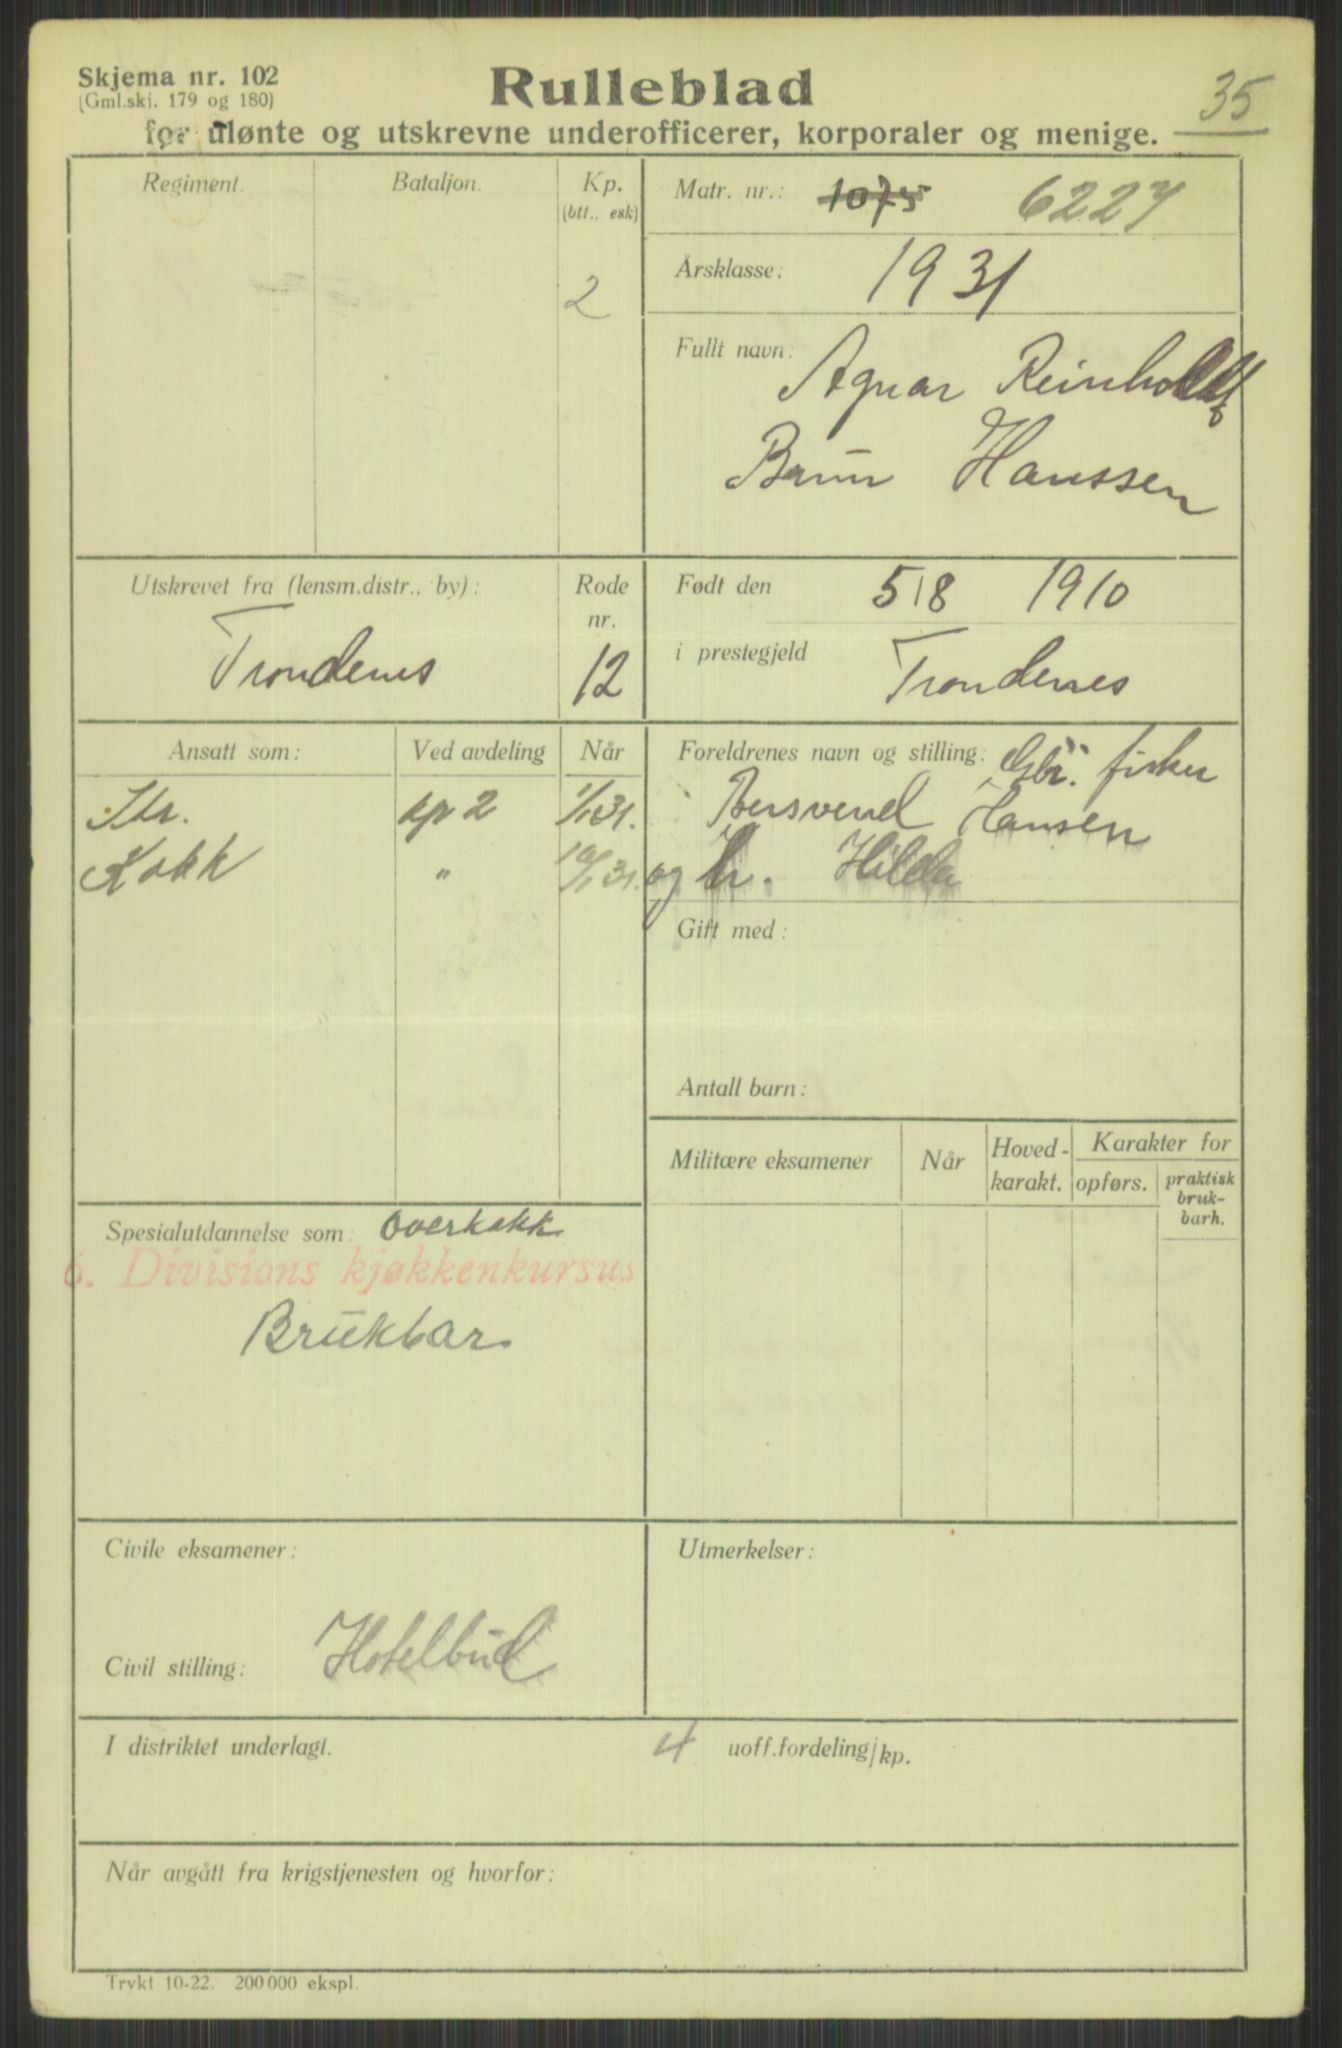 Skjema nr. 102
(Gml.skj. 179 og 180)
Rulleblad
35
for ulønte og utskrevne underofficerer, korporaler og menige.
Regiment.
Bataljon.
Kp.
(btt., esk)
2
Matr. nr.: 1075 6227
Årsklasse: 1931
Fullt navn: Agnar Reinholdt
Brun Hanssen
Utskrevet fra (lensm.distr., by):
Trondenes
Rode
nr.
12
Født den 5/8 1910
i prestegjeld Trondenes
Ansatt som:
Ved avdeling
Når
Str. kp 2 1/1 31.
Kokk " 31.
Foreldrenes navn og stilling: Gbr. fisker
Bersvend Hansen
og h. Hilda
Gift med:
Antall barn:
Militære eksamener
Når
Hoved-
karakt.
Karakter for
opførs.
praktisk
bruk-
barh.
Spesialutdannelse som: Overkokk
6. Divisions kjøkkenkursus
Brukbar
Civile eksamener:
Civil stilling: Hotelbud
Utmerkelser:
I distriktet underlagt. 4 uoff.fordeling/kp.
Når avgått fra krigstjenesten og hvorfor:
Trykt 10-22. 200 000 ekspl.